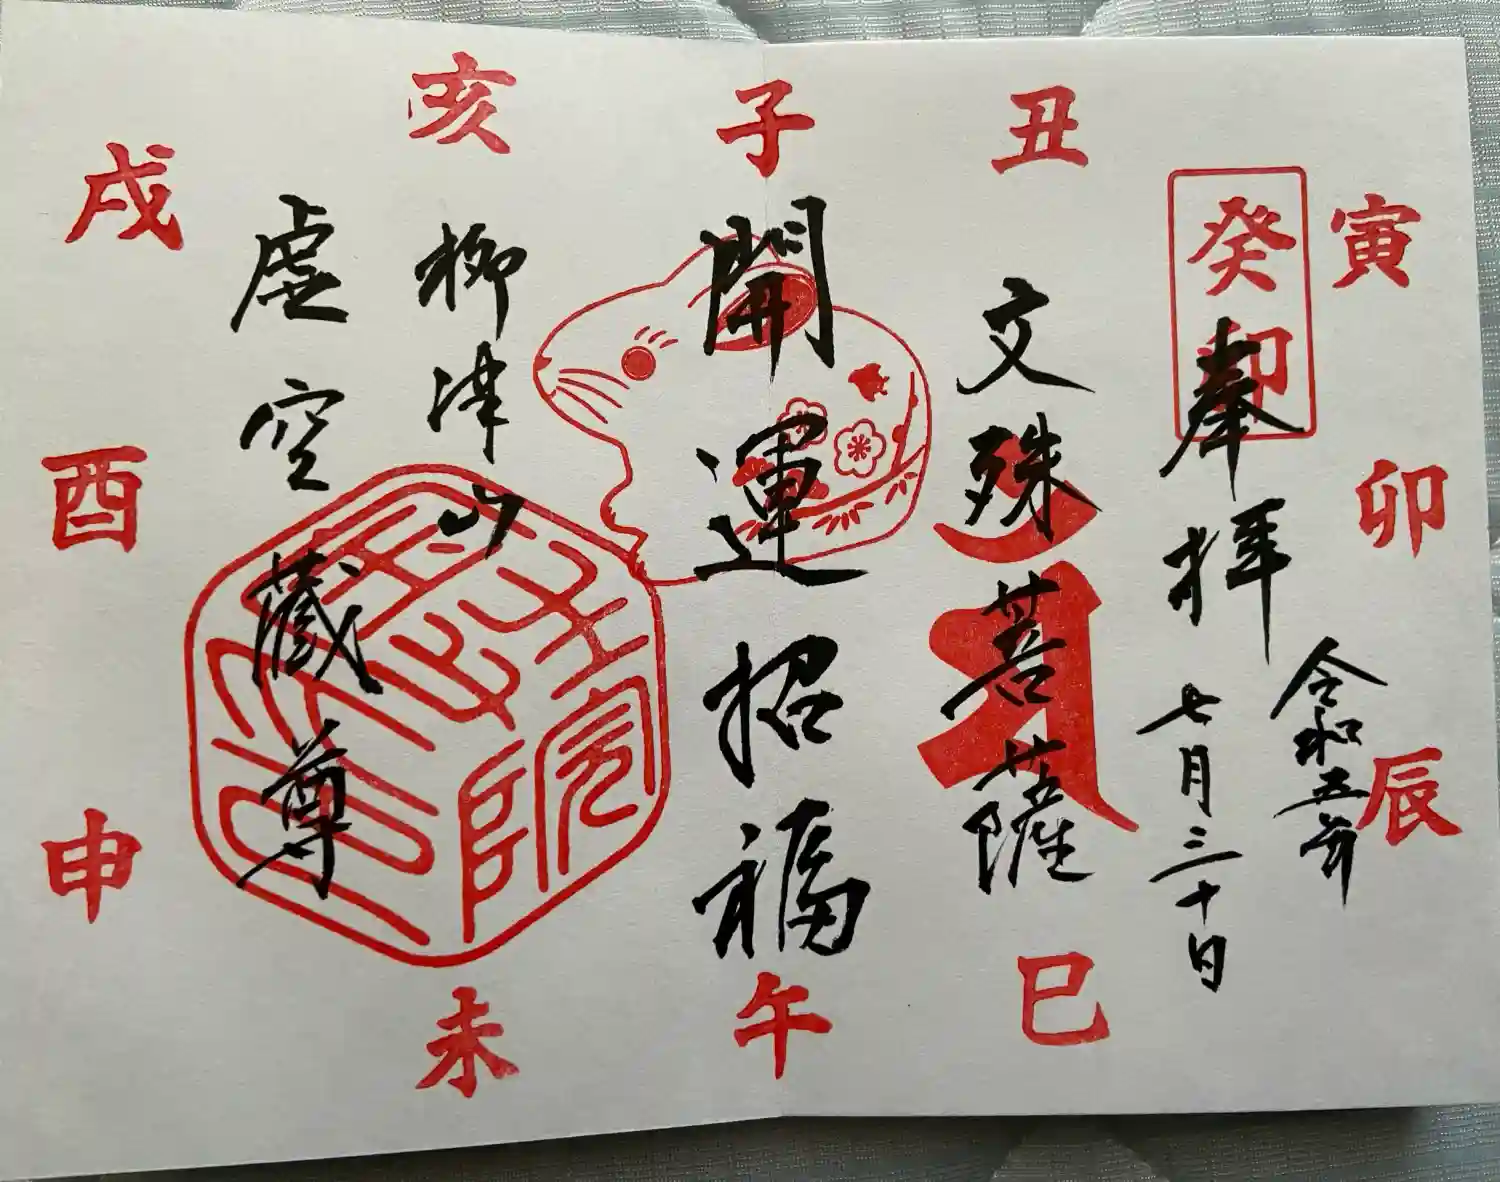 子
丑
寅
卯
辰
巳
午
未
申
酉
戌
亥
癸卯
奉拝
令和五年
七月三十日
文殊菩薩
開運招福
柳津山
虚空蔵尊